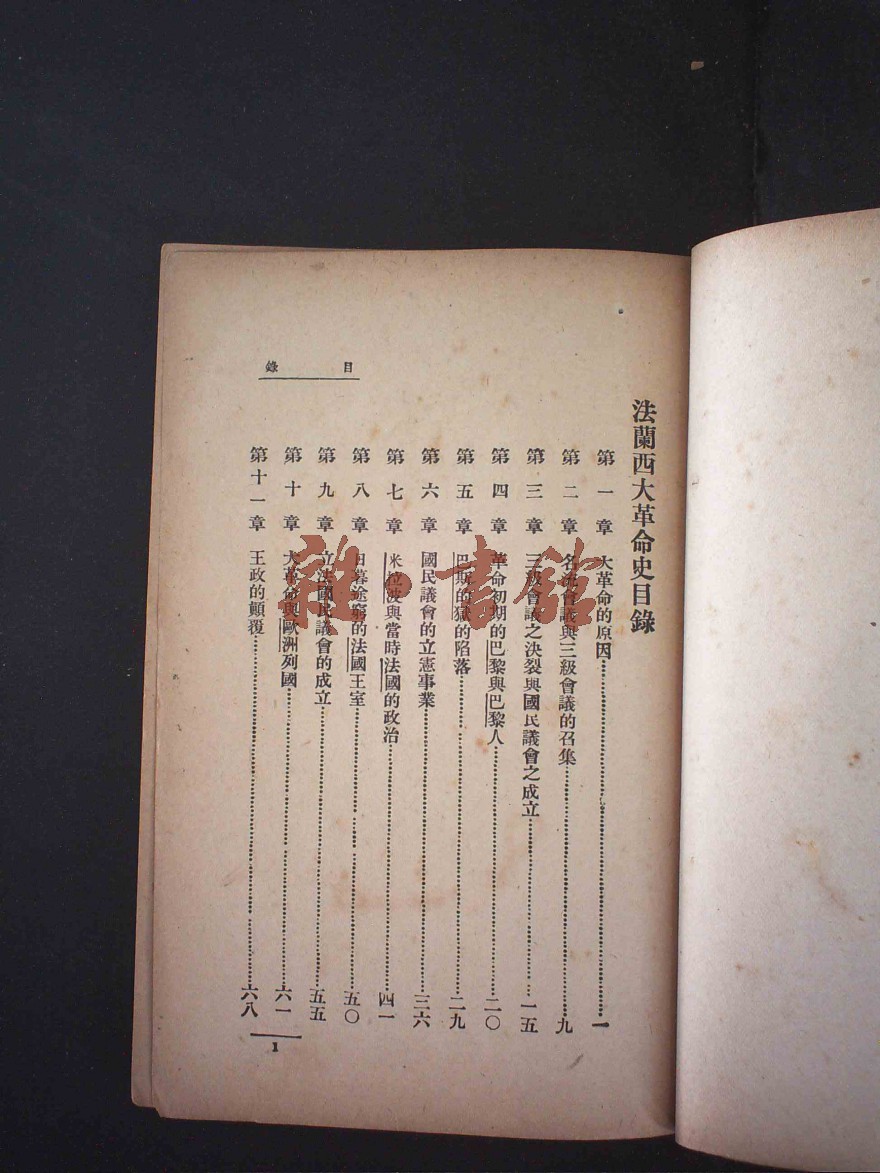 目錄
法蘭西大革命史目錄
第一章 大革命的原因…………一
第二章 名流會議與三級會議的召集…………九
第三章 三級會議之決裂與國民議會之成立…………一五
第四章 革命初期的巴黎與巴黎人…………二〇
第五章 巴斯的獄的陷落…………二九
第六章 國民議會的立憲事業…………三六
第七章 米拉波與當時法國的政治…………四一
第八章 日暮途窮的法國王室…………五〇
第九章 立法國民議會的成立…………五五
第十章 大革命與歐洲列國…………六一
第十一章 王政的顛覆…………六八
1
雜·書館